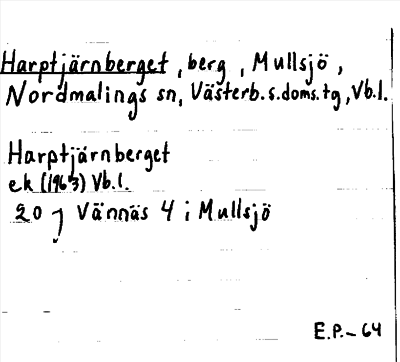 Harptjärnberget, berg, Mullsjö,
Nordmalings sn, Västerb.s.doms.tg, Vb.l.
Harptjärnberget
ek (1963) Vb.l.
20 J Vännäs 4 i Mullsjö
E.P.-64